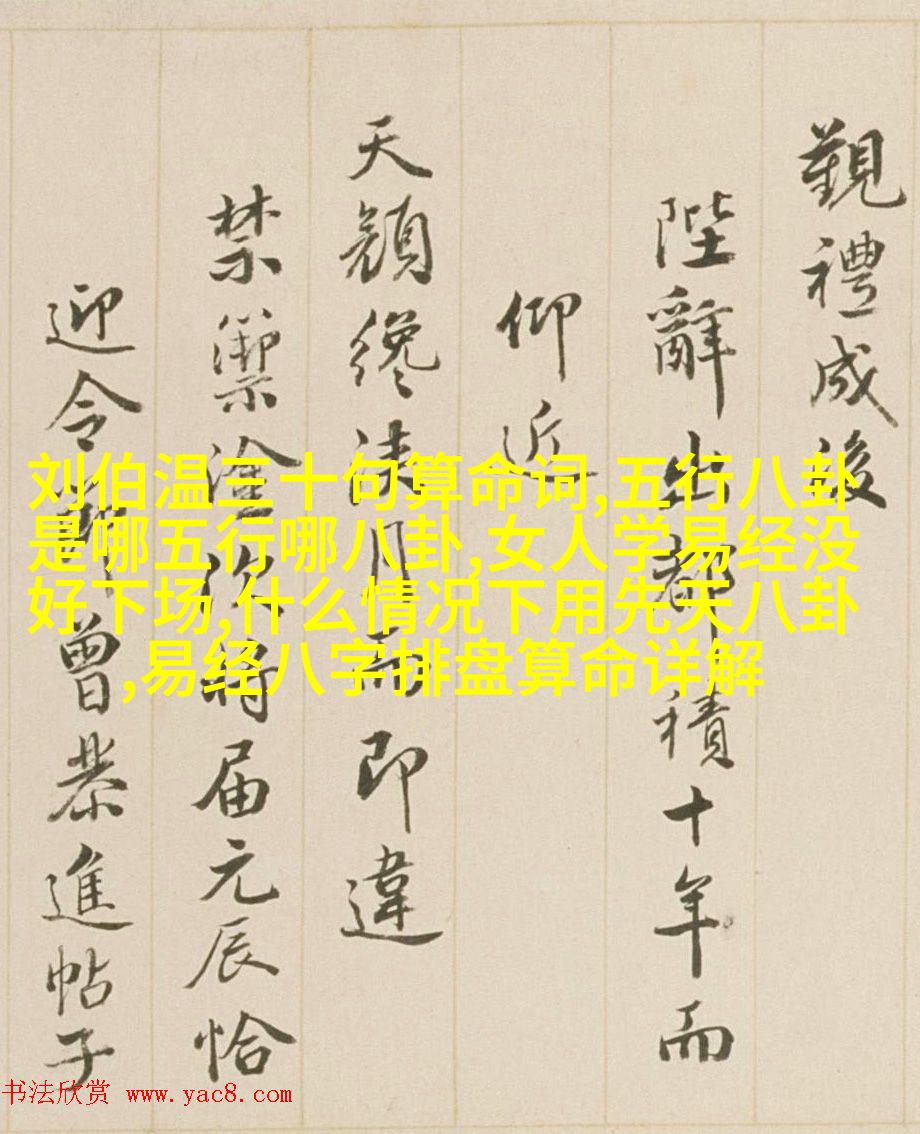 覲禮成後
陛辭出都積十年而
仰近
天顏纔浹月而即違
禁籞塗次將届元辰恰
迎令節曾恭進帖子
刘伯温三十句算命词,五行八卦
是哪五行哪八卦,女人学易经没
好下场,什么情况下用先天八卦
,易经八字排盘算命详解
书法欣赏 www.yac8.com